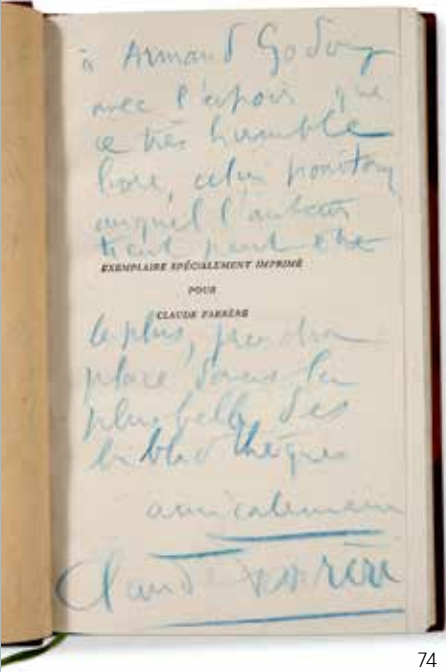 à Armand Godoy
avec l'espoir que
ce très humble
livre, celui pourtant
auquel l'auteur
tient peut-être
EXEMPLAIRE SPÉCIALEMENT IMPRIMÉ
POUR
CLAUDE FARRÈRE
le plus, prendra
place dans la
plus belle des
bibliothèques
amicalement
Claude Farrère
74